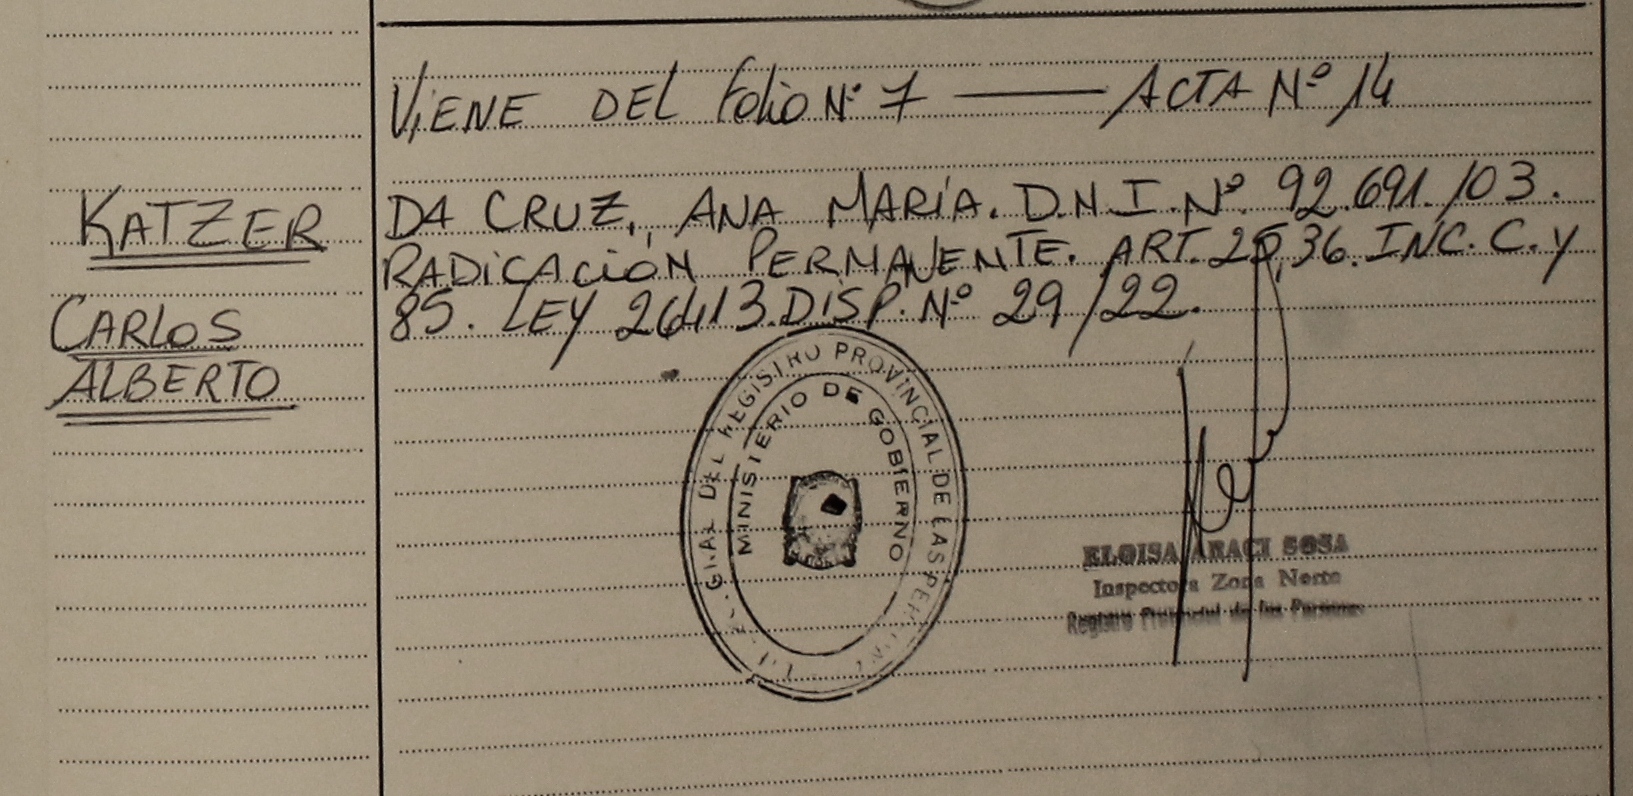 VIENE DEL Folio Nº 7 — ACTA Nº 14
KATZER
CARLOS
ALBERTO
DA CRUZ, ANA MARÍA. D.N.I. Nº 92.691.103.
RADICACIÓN PERMANENTE. ART. 25,36. INC. C. Y
85. LEY 26413. DISP. Nº 29/22.
DEL REGISTRO PROVINCIAL DE LAS PERSONAS
MINISTERIO DE GOBIERNO
ELOISA ARACI SOSA
Inspectora Zona Norte
Registro Provincial de las Personas